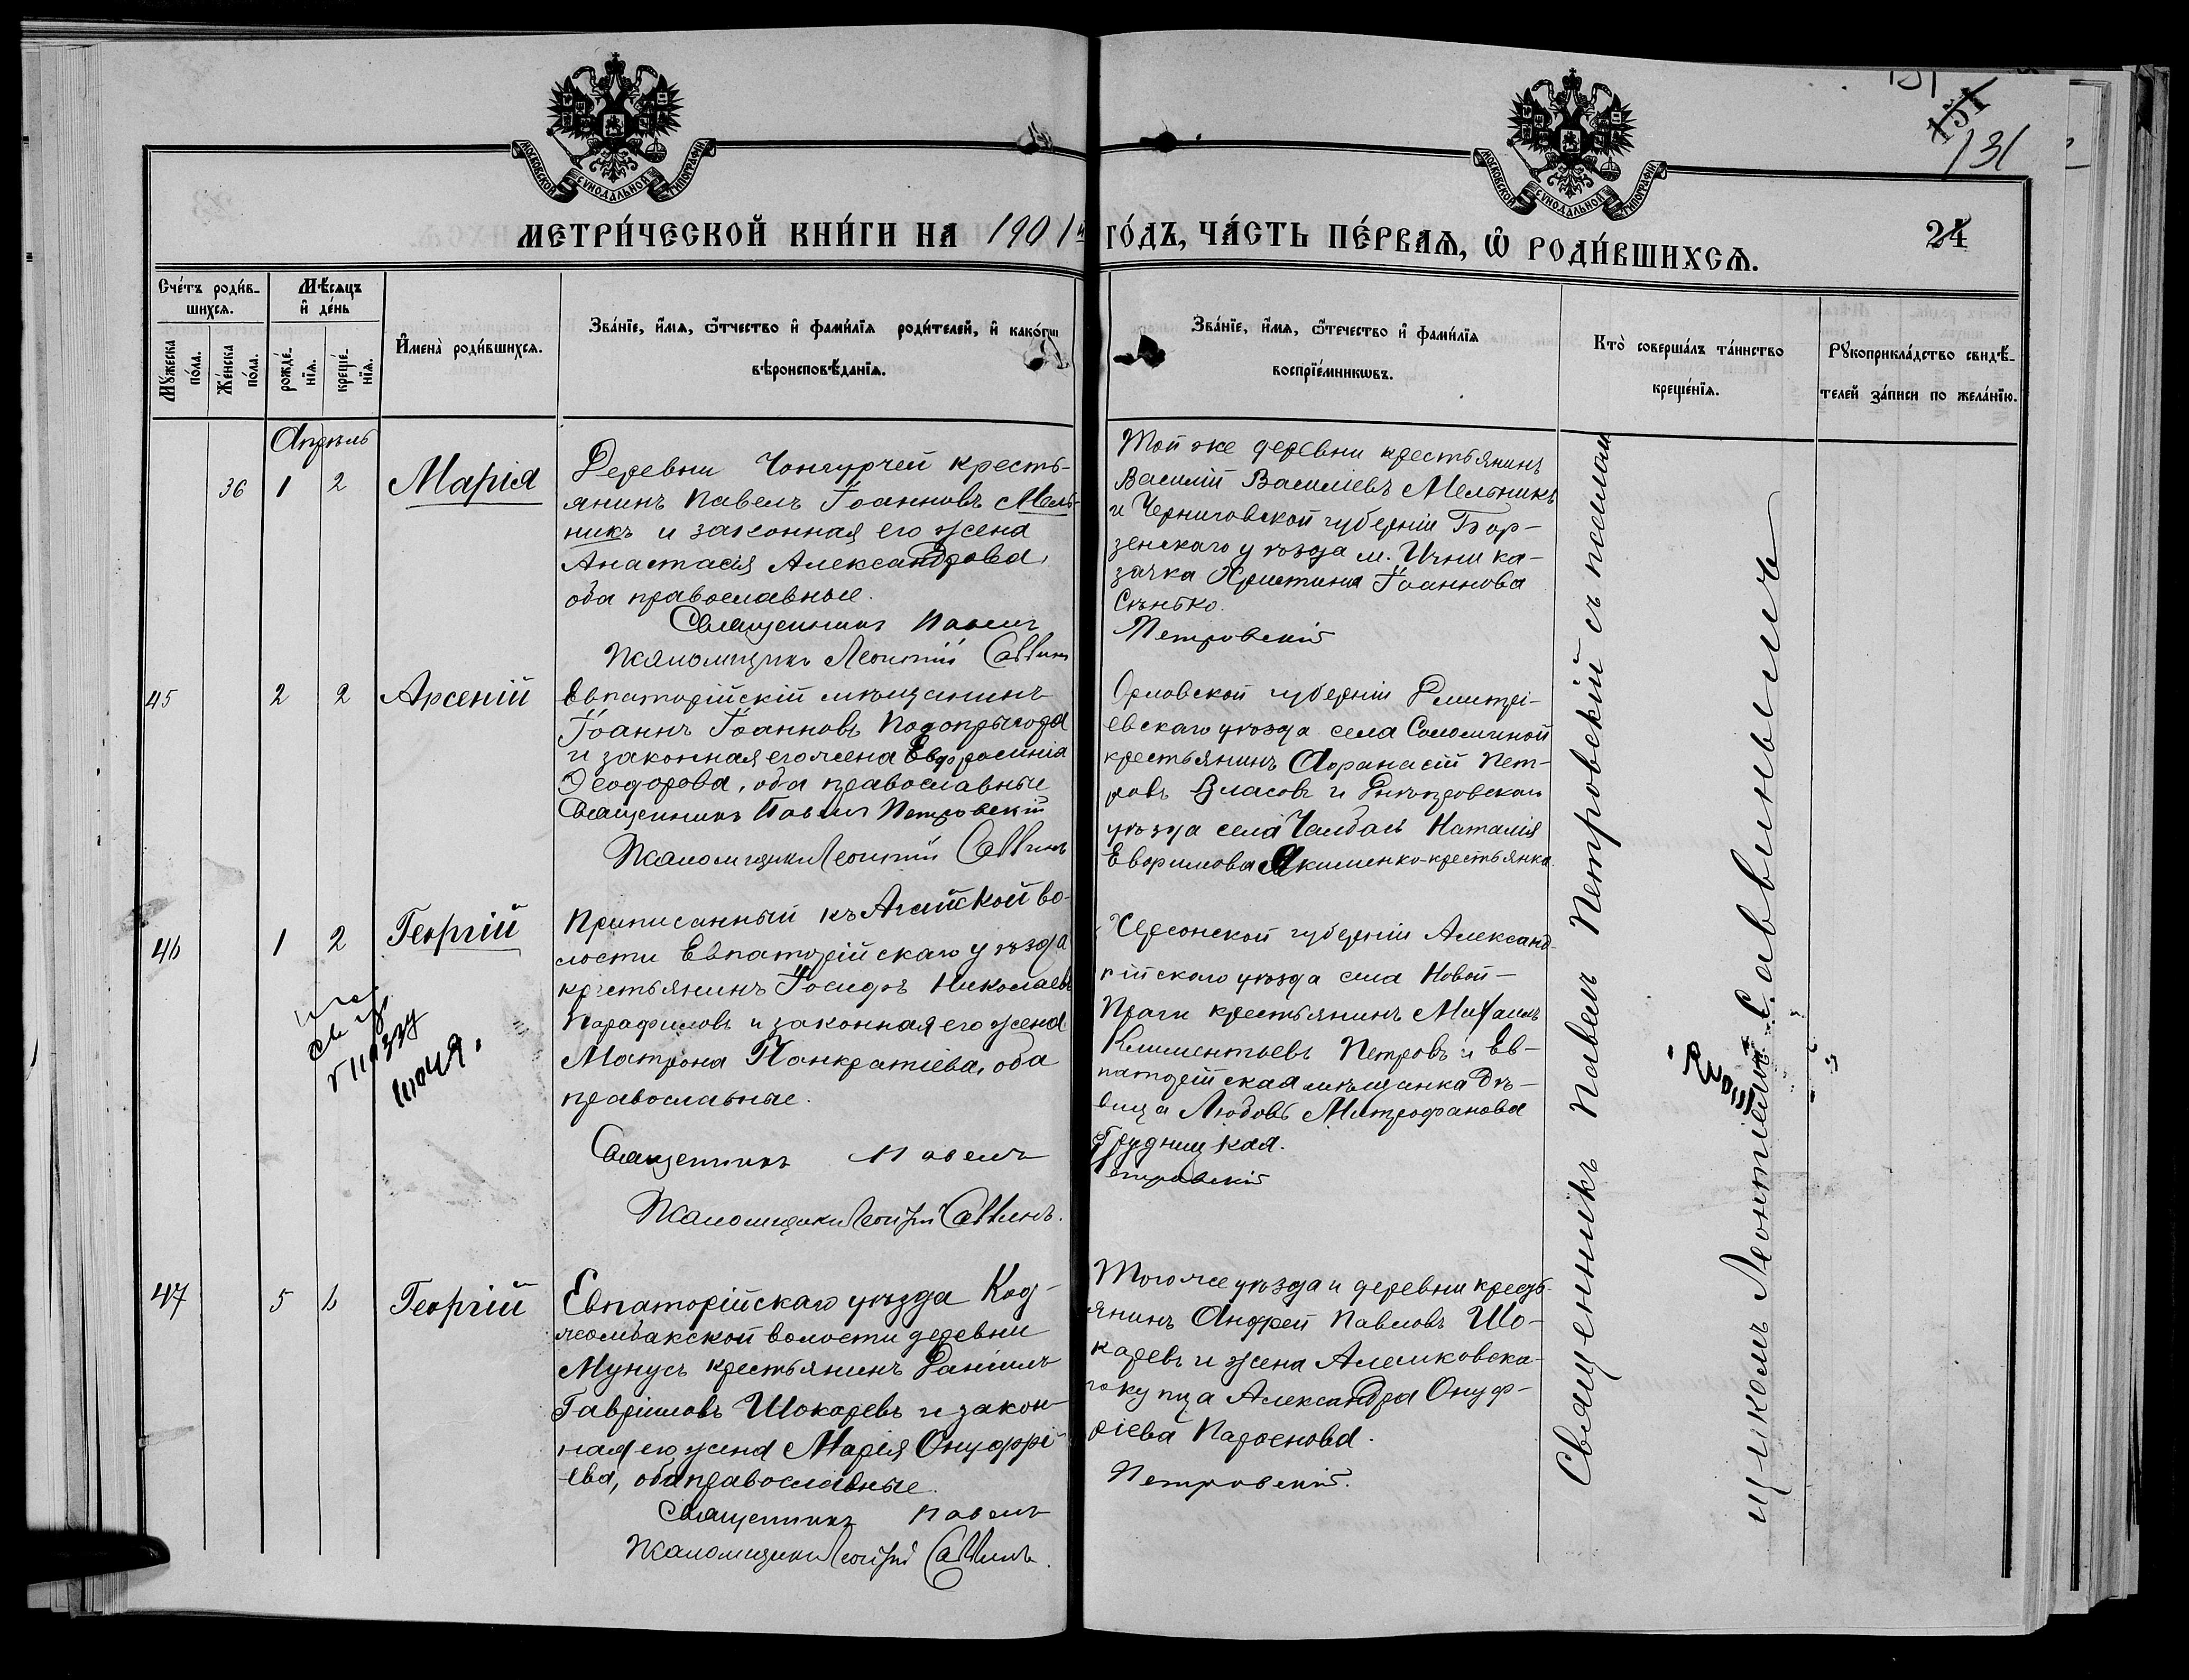 131
151
МОСКОВСКОЙ СѴНОДАЛЬНОЙ ТИПОГРАФІИ
МОСКОВСКОЙ СѴНОДАЛЬНОЙ ТИПОГРАФІИ
МЕТРИ́ЧЕСКОЙ КНИ́ГИ НА 1901й ГО́ДЪ, ЧА́СТЬ ПЕ́РВАѦ, Ѡ҆ РОДИ́ВШИХСѦ.
24
Сче́тъ роди́в-
шихсѧ.
Мꙋ́жеска по́ла.
Же́нска по́ла.
Мѣ́сѧцъ и҆ де́нь
рожде́-нїѧ.
креще́-нїѧ.
И҆мена̀ роди́вшихсѧ.
Зва́нїе, и҆́мѧ, ѿтчество и҆ фами́лїѧ роди́телей, и҆ како́гѡ
вѣроисповѣ́данїѧ.
Зва́нїе, и҆́мѧ, ѻ҆те́чество и҆ фами́лїѧ
воспрїе́мникѡвъ.
Кто̀ соверша́лъ та́инство
креще́нїѧ.
Рꙋкоприкла́дство свидѣ́-
телей за́писи по жела́нїю.
Апрѣль
36 1 2 Марія
Деревни Чонгурчей кресть-
янинъ Павелъ Іоанновъ Мель-
никъ и законная его жена
Анастасія Александрова,
оба православные.
Священникъ Павелъ
Псаломщикъ Леонтій Саввинъ
Той же деревни крестьянинъ
Василій Василіевъ Мельникъ
и Черниговской губерніи Бор-
зенскаго уѣзда м. Ични ка-
зачка Христина Іоаннова
Сѣнько.
Петровскій
45 2 2 Арсеній
Евпаторійскій мѣщанинъ
Іоаннъ Іоанновъ Подопрыгора
и законная его жена Евфросинія
Ѳеодорова, оба православные
Священникъ Павелъ Петровскій
Псаломщикъ Леонтій Саввинъ
Орловской губерніи Дмитрі-
евскаго уѣзда села Соломиной
крестьянинъ Аѳанасій Пет-
ровъ Власовъ и Днѣпровскаго
уѣзда села Чалбасъ Наталія
Евфимова Якименко-крестьянка.
46 1 2 Георгій
Приписанный къ Агайской во-
лости Евпаторійскаго уѣзда
крестьянинъ Іосидоръ Николаевъ
Парафиловъ и законная его жена
Матрона Панкратіева, оба
православные.
Священникъ Павелъ
Псаломщикъ Леонтій Саввинъ.
Херсонской губерніи Александ-
рійскаго уѣзда села Новой-
Праги крестьянинъ Михаилъ
Климентьевъ Петровъ и Ев-
паторійская мѣщанка дѣ-
вица Любовь Митрофанова
Грудницкая.
Петровскій
47 5 6 Георгій
Евпаторійскаго уѣзда Код-
жамбакской волости деревни
Мунусъ крестьянинъ Даніилъ
Гавріиловъ Шокаревъ и закон-
ная его жена Марія Онуфрі-
ева, оба православные.
Священникъ Павелъ
Псаломщикъ Леонтій Саввинъ.
Того же уѣзда и деревни кресть-
янинъ Андрей Павловъ Шо-
каревъ и жена Алешковска-
го купца Александра Онуф-
ріева Парѳенова.
Петровскій.
Священникъ Павелъ Петровскій съ псалом-
щикомъ Леонтіемъ Саввинымъ